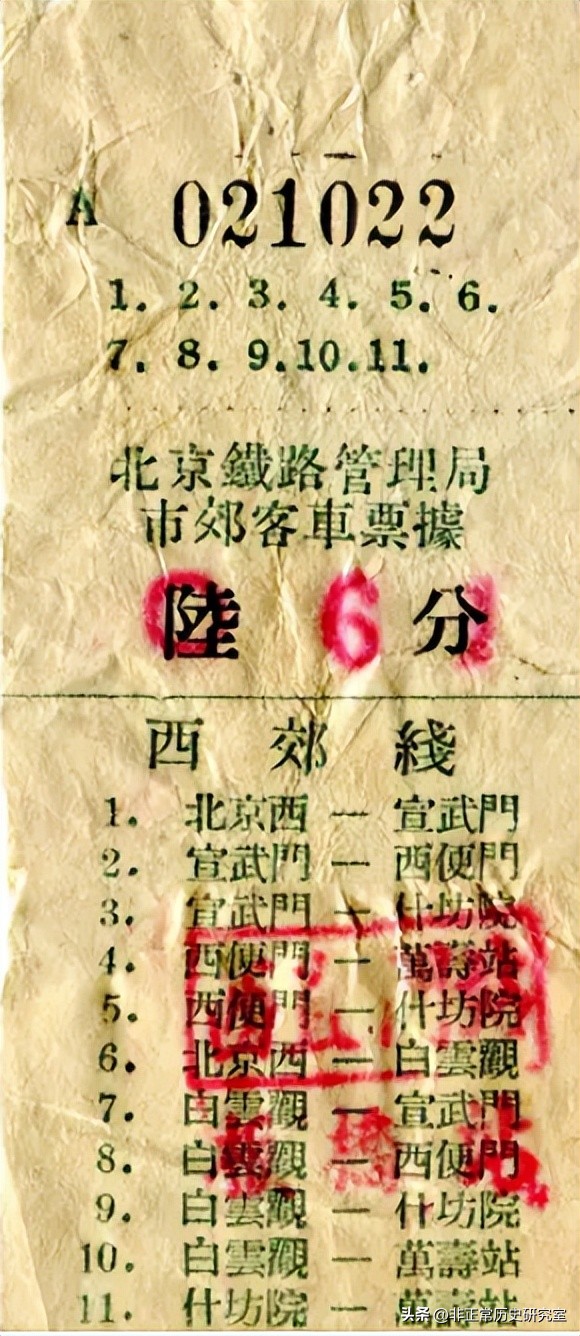 A 021022
1. 2. 3. 4. 5. 6.
7. 8. 9. 10. 11.
北京鐵路管理局
市郊客車票據
陸 6 分
西郊綫
1. 北京西 — 宣武門
2. 宣武門 — 西便門
3. 宣武門 — 什坊院
4. 西便門 — 萬壽站
5. 西便門 — 什坊院
6. 北京西 — 白雲觀
7. 白雲觀 — 宣武門
8. 白雲觀 — 西便門
9. 白雲觀 — 什坊院
10. 白雲觀 — 萬壽站
11. 什坊院 — 萬壽站
头条 @非正常历史研究室